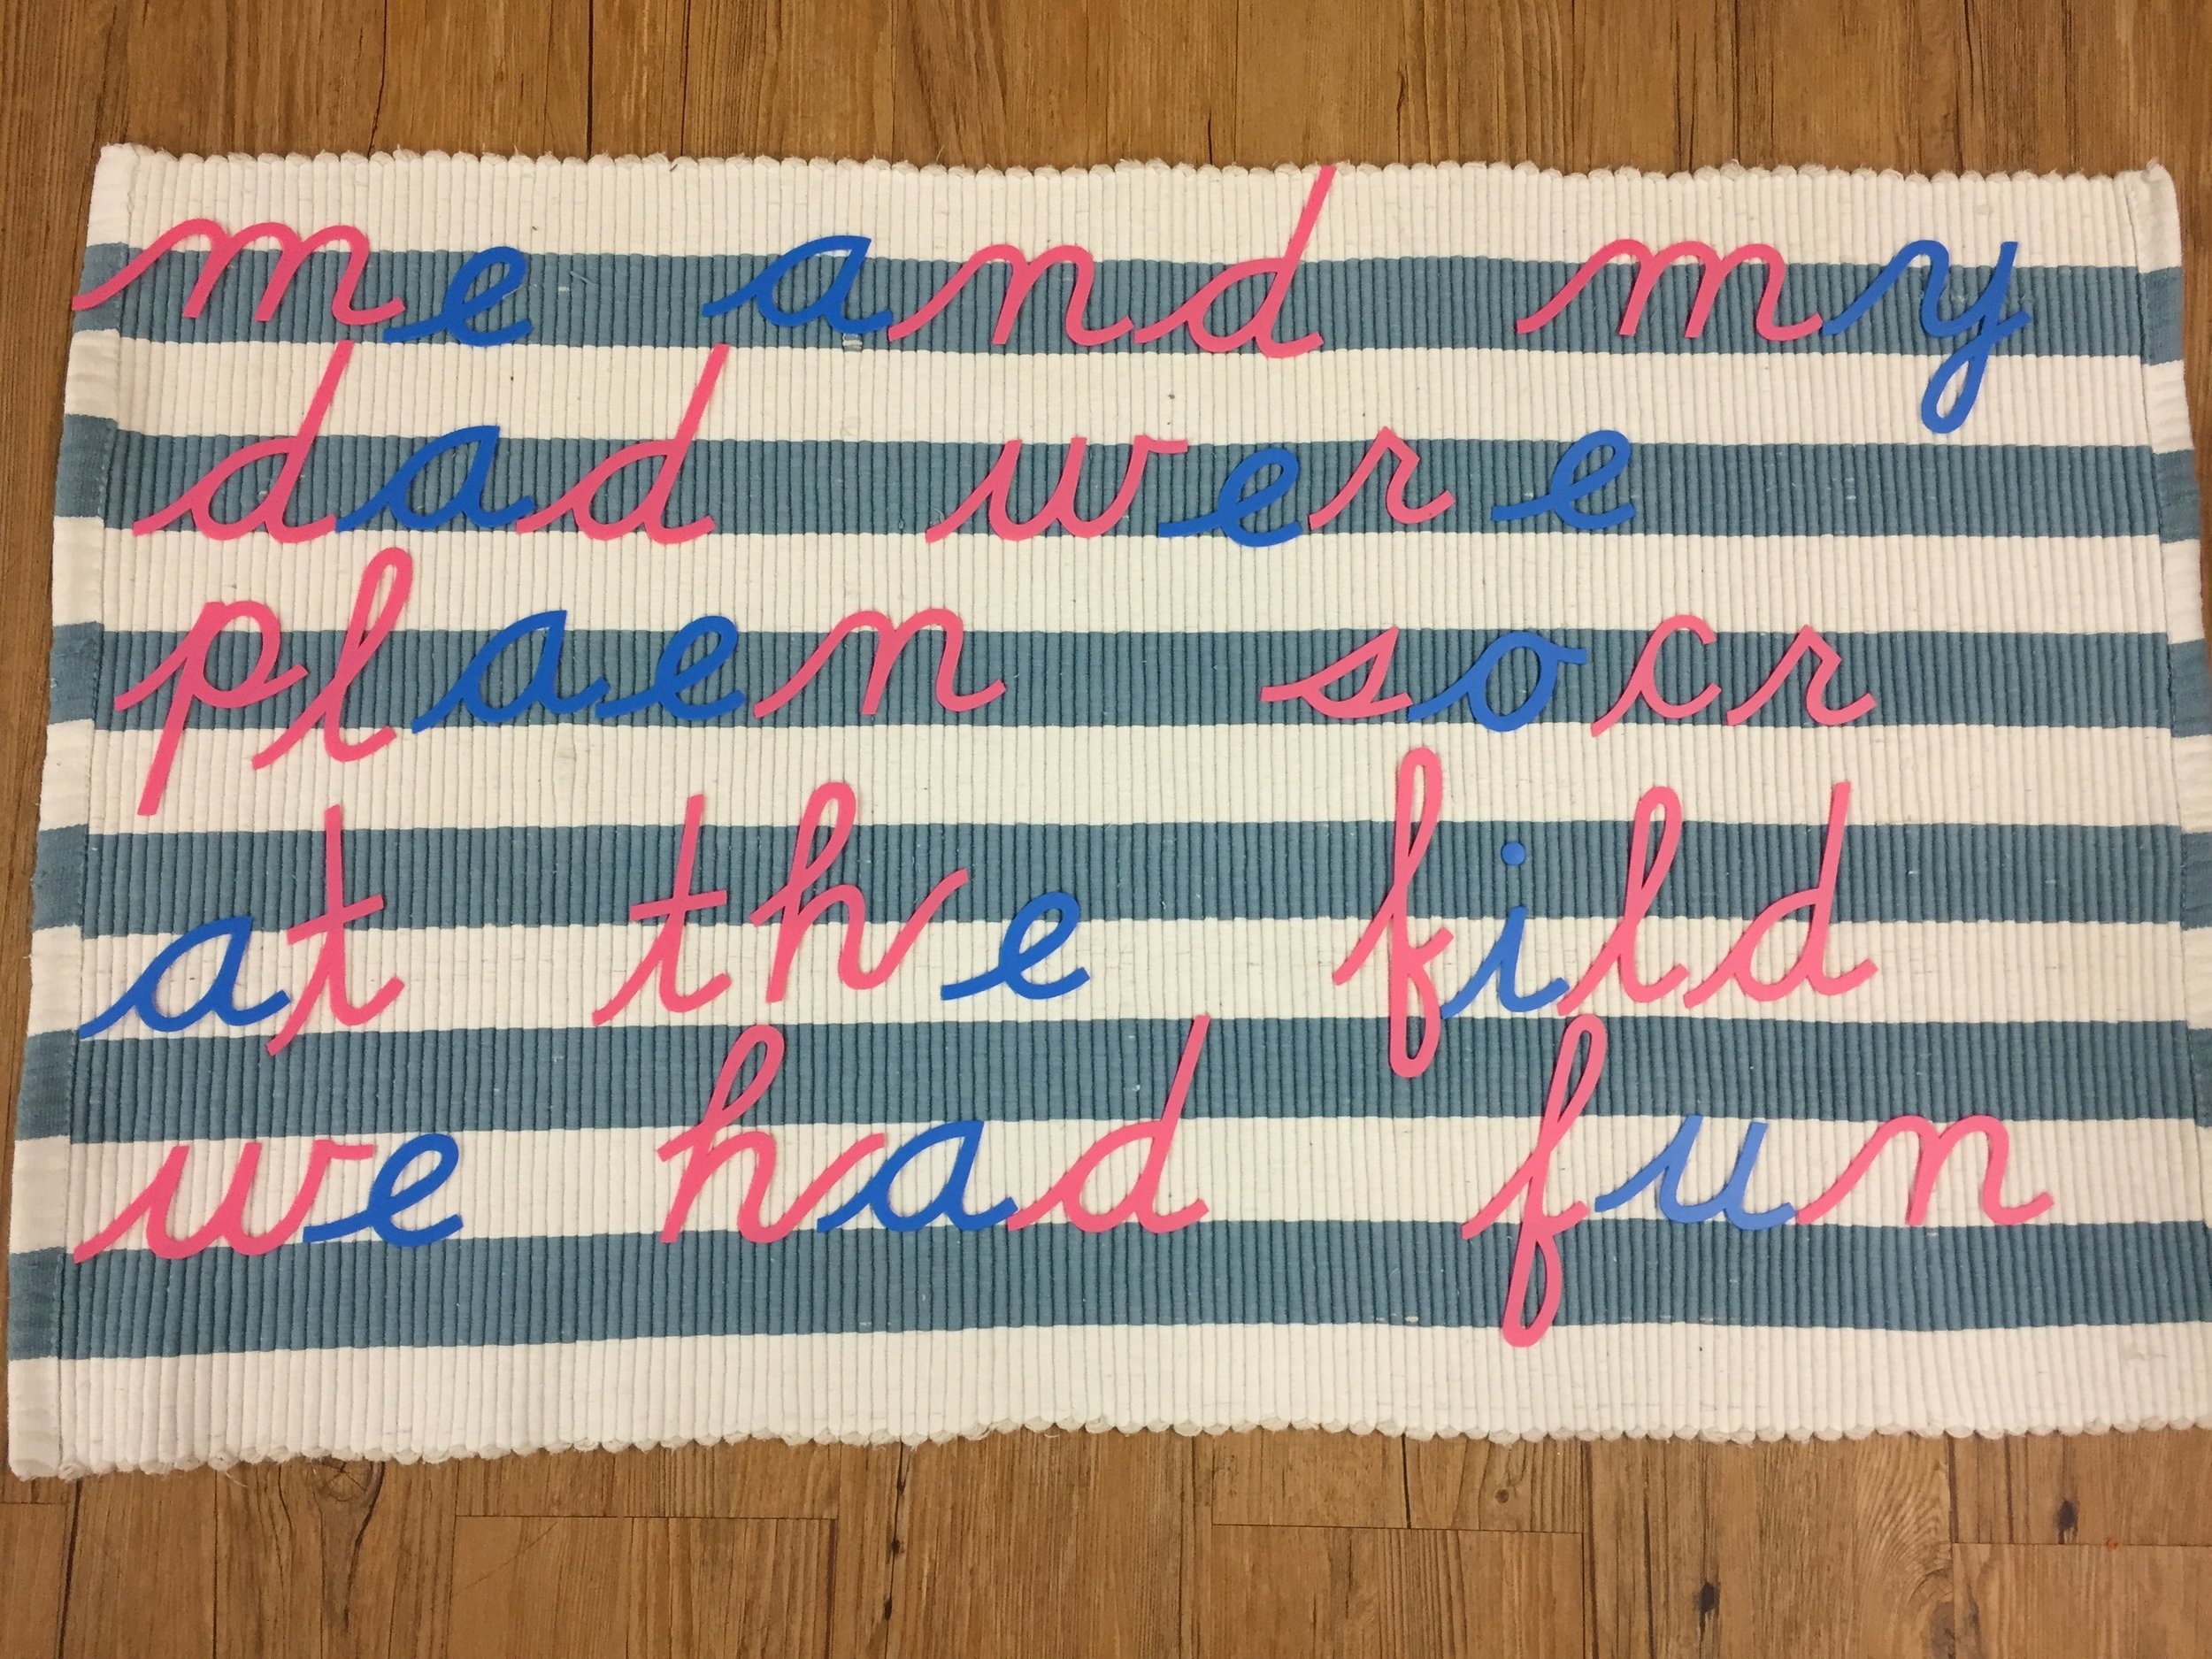 me and my
dad were
plaen socr
at the fild
we had fun